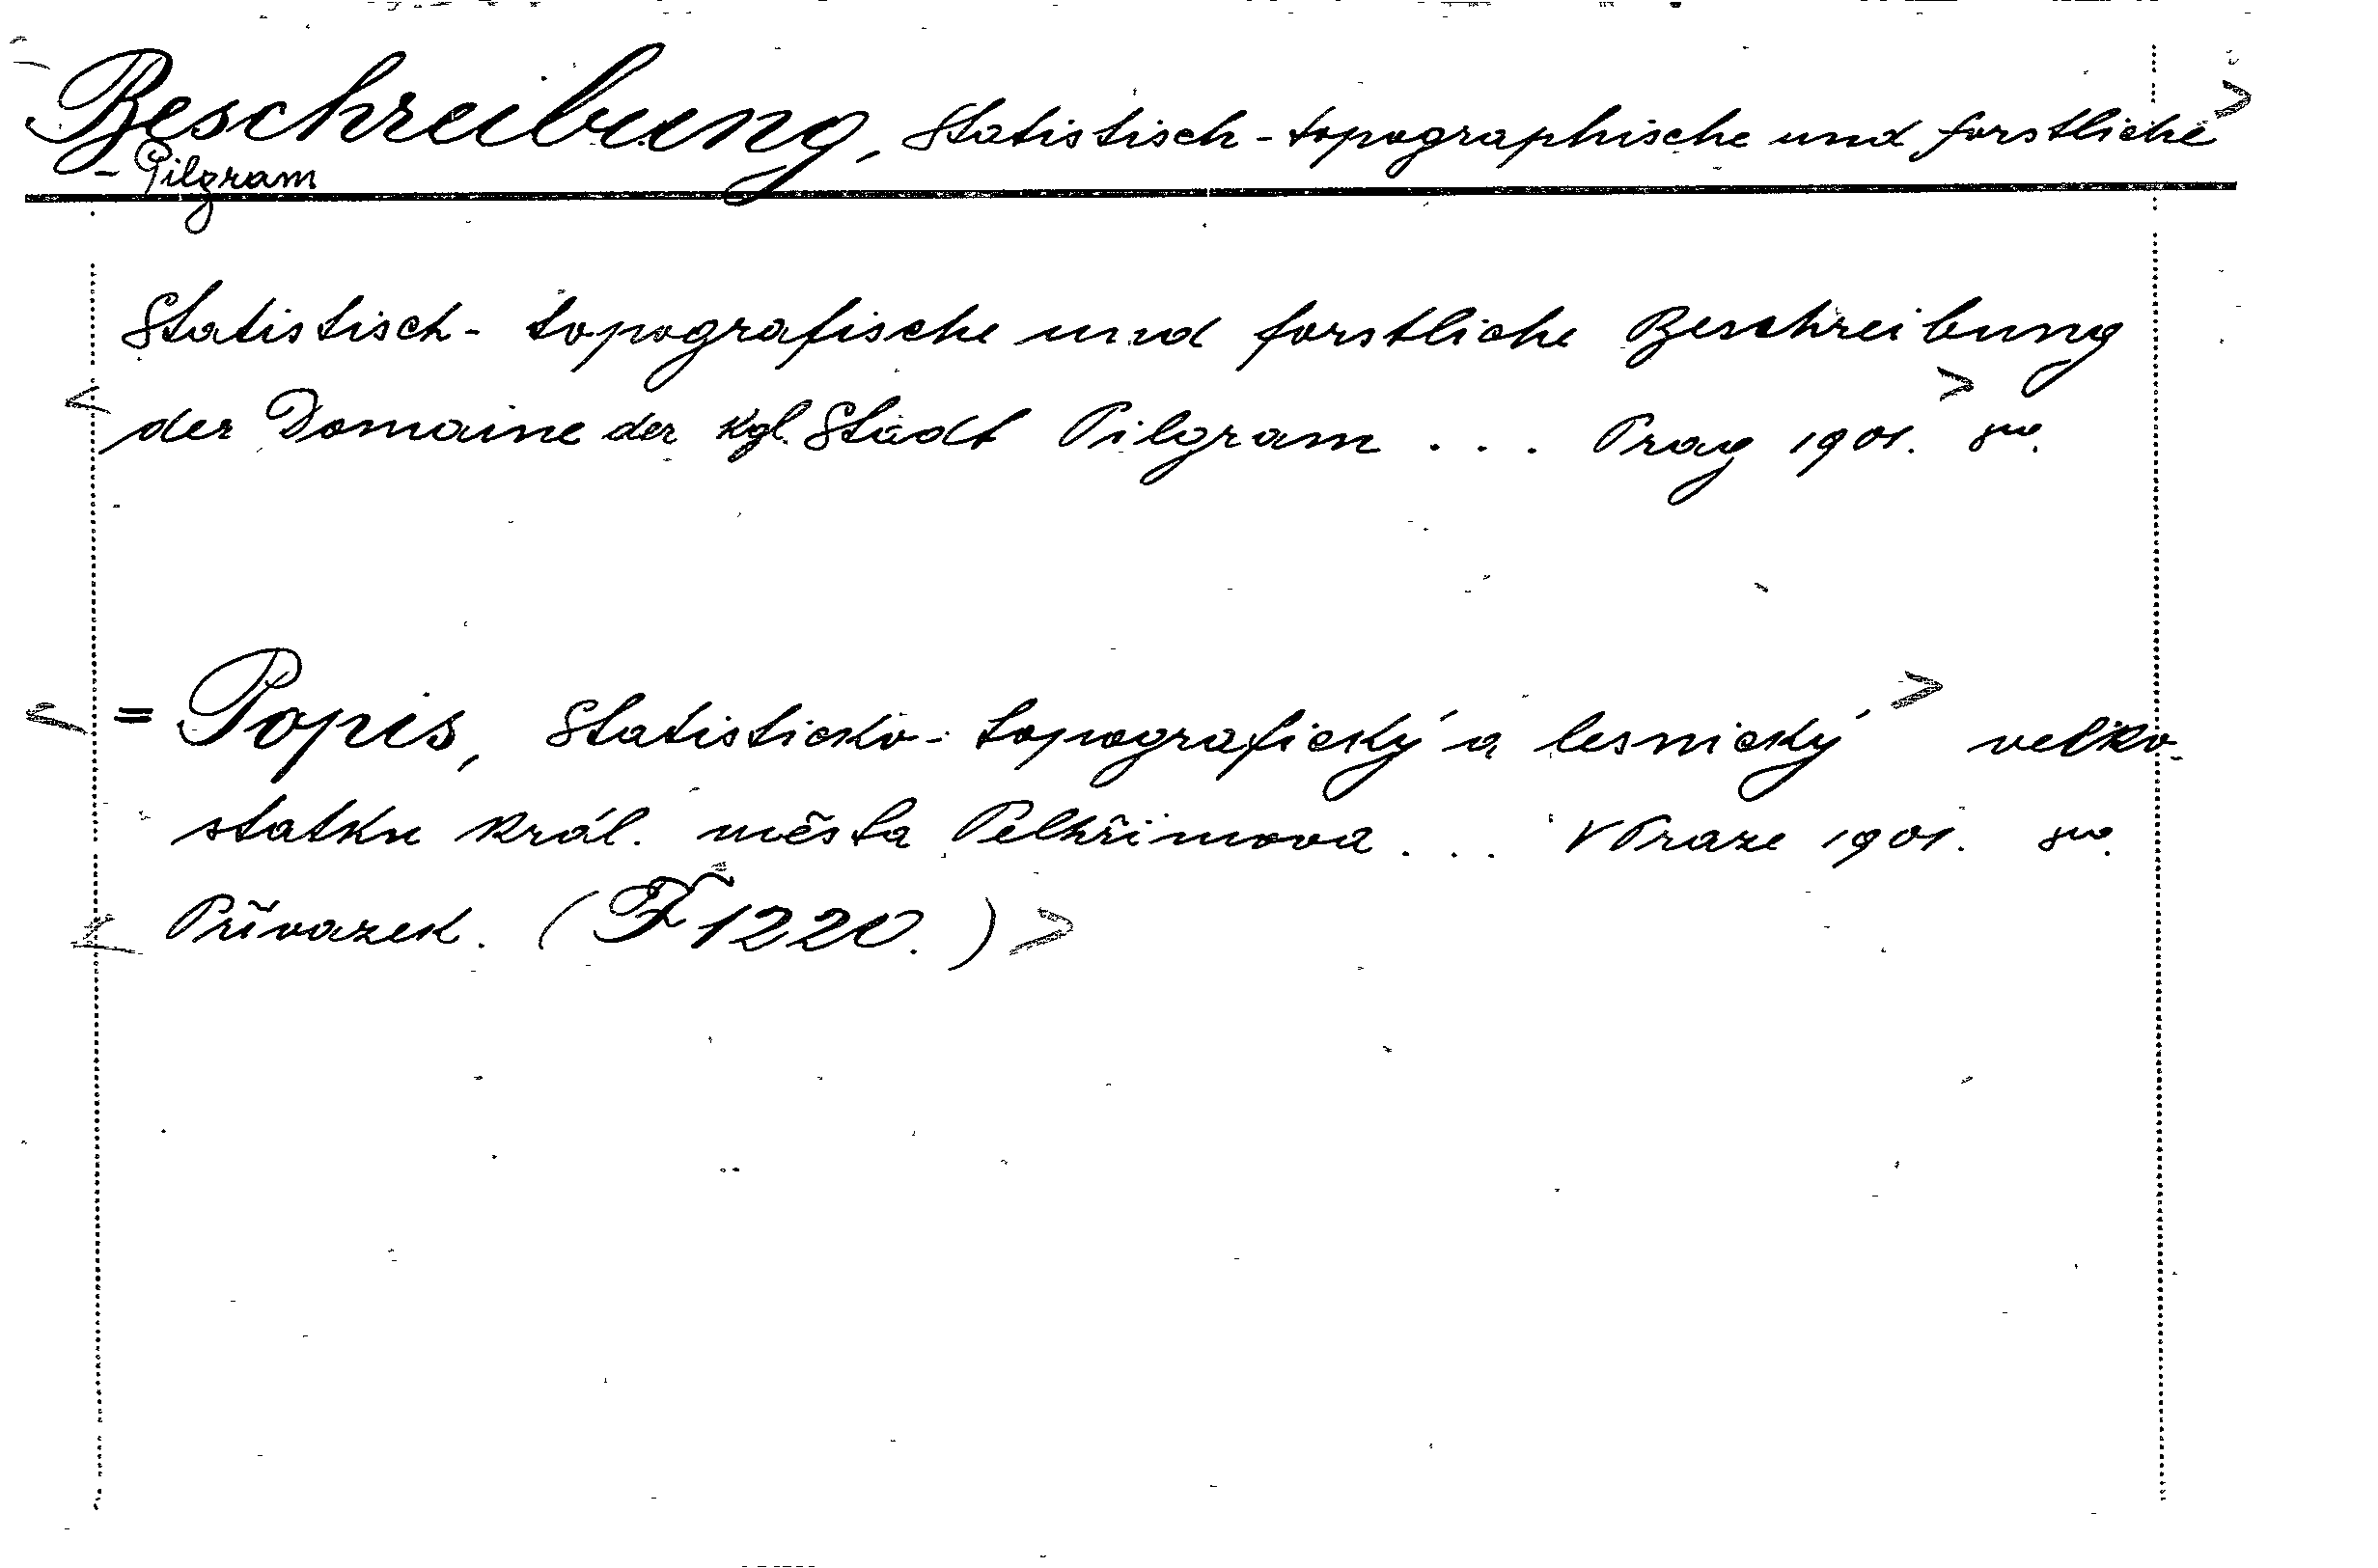 Beschreibung, Statistisch-topographische und forstliche >
- Pilgram
Statistisch-topografische und forstliche Beschreibung
< der Domaine der kgl. Stadt Pilgram ... Prag 1901. > 8vo.
< = Popis, Statisticko-topografický a lesnický > velko-
statku král. města Pelhřimova ... V Praze 1901. 8vo.
< Přívazek. (F 1220.) >